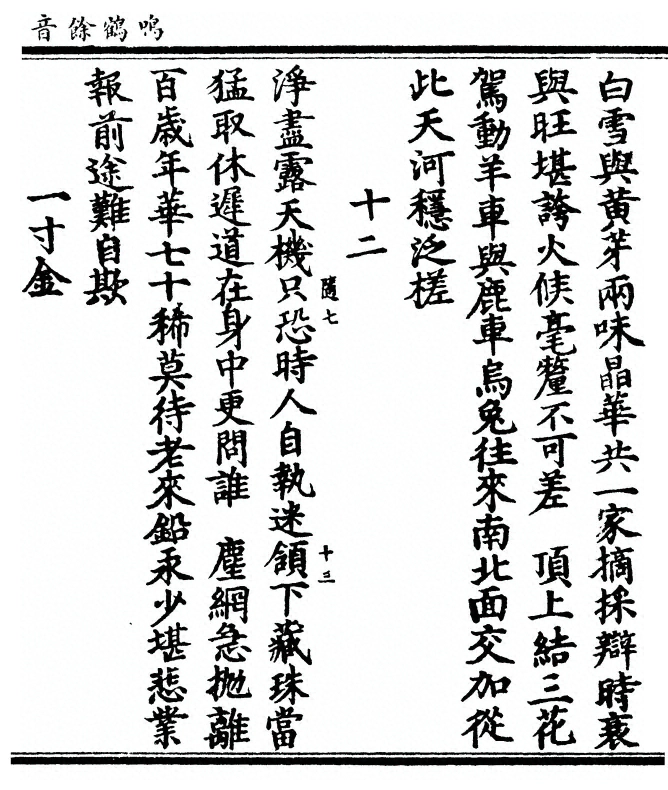 鳴鶴餘音
白雪與黃芽兩味晶華共一家摘採辯時衰
與旺堪誇火候毫釐不可差　頂上結三花
駕動羊車與鹿車烏兔往來南北面交加從
此天河穩泛槎
十二
淨盡露天機只恐時人自執迷頷下藏珠當
隨七
十三
猛取休遲道在身中更問誰　塵網急拋離
百歲年華七十稀莫待老來鉛汞少堪悲業
報前途難自欺
一寸金